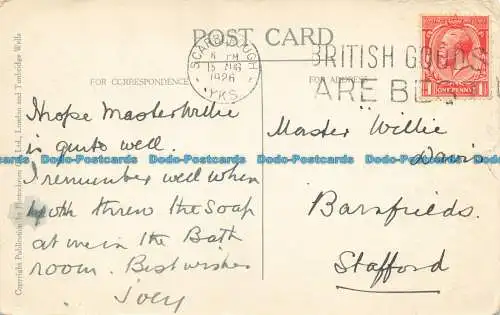 POST CARD
SCARBOROUGH
6 PM
15 AUG
1926
YKS.
BRITISH GOODS
ARE BEST
1 ONE PENNY 1
FOR CORRESPONDENCE
FOR ADDRESS
I hope Master Willie
is quite well.
I remember well when
you threw the Soap
at me in the Bath
room. Best wishes
Joey
Master Willie
Davis
Barnfields.
Stafford
Copyright Publication by Photochrom Co., Ltd., London and Tunbridge Wells
Dada-Postcards Dada-Postcards Dada-Postcards Dada-Postcards